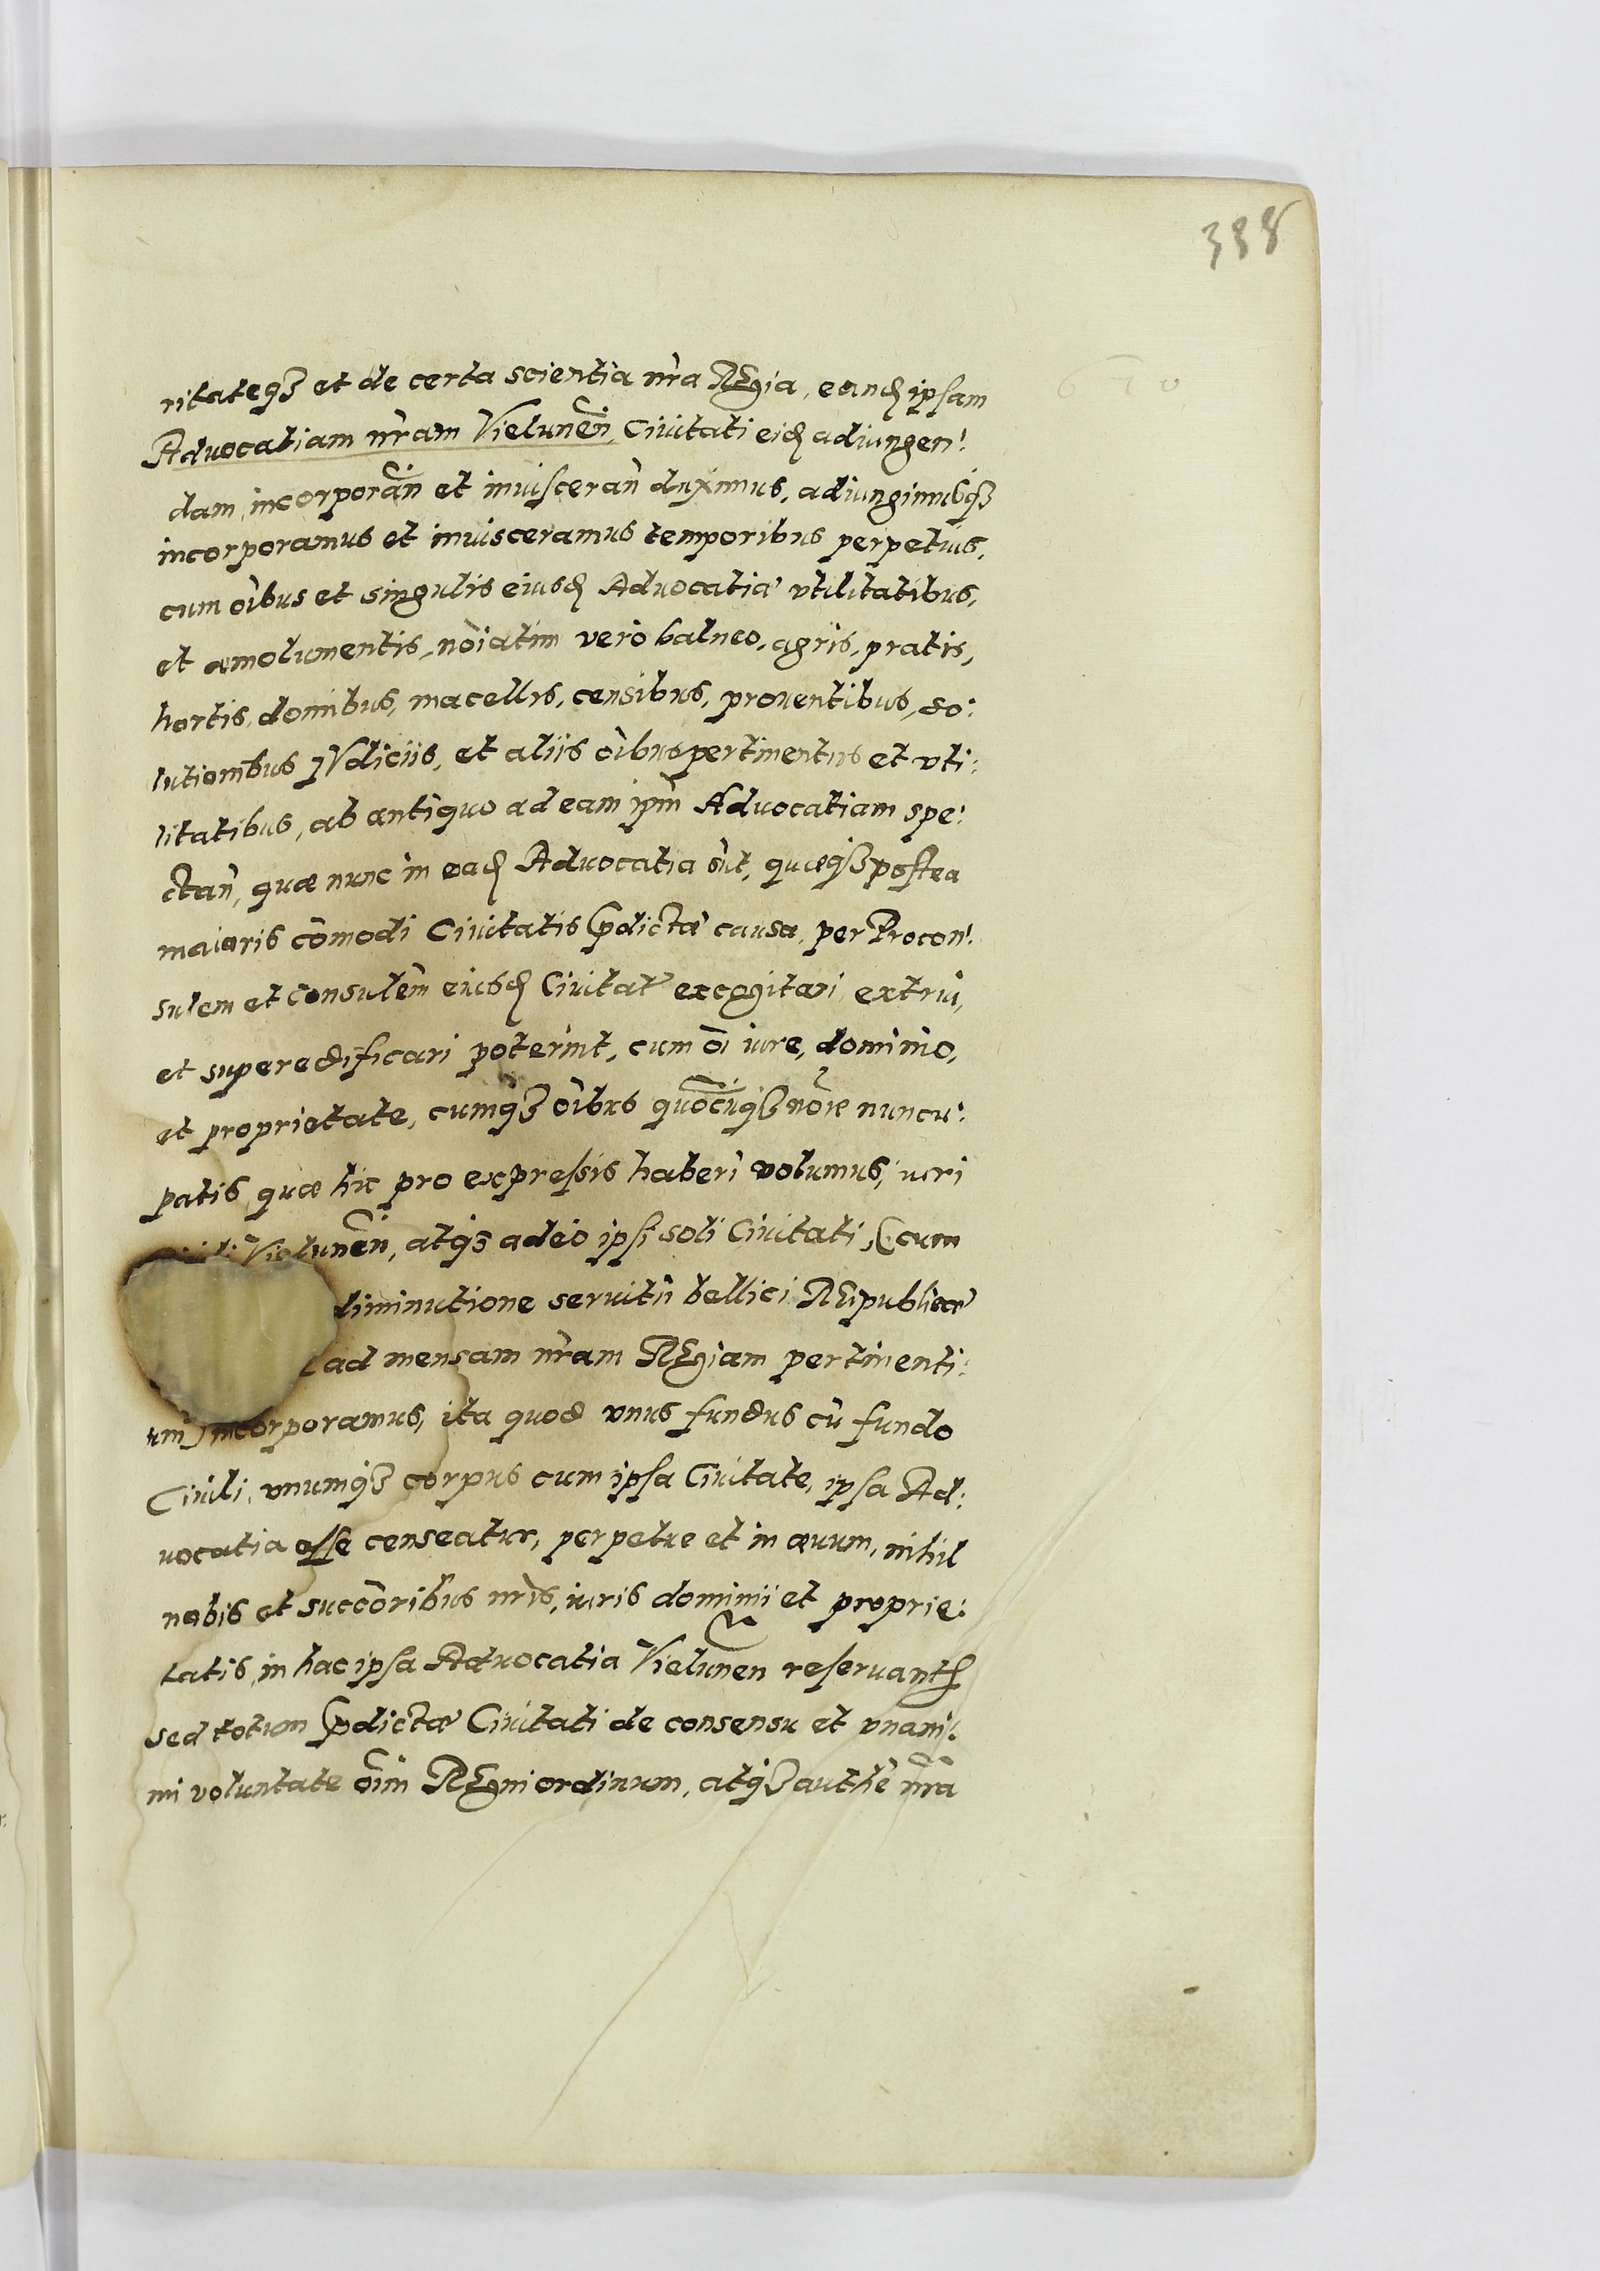 388
ritateq3 et de certa scientia nr̃a REgia, eandẽ ipsam
Aduocatiam nr̃am Vielunen̄, Ciuitati eidẽ adiungen:
dam, incorporan̄ et inuisceran̄ duximus, adiungimusq3
incorporamus et inuisceramus temporibus perpetuis,
cum oĩbus et singulis eiusdẽ Aduocatiæ vtilitatibus,
et æmolumentis, noĩatim vero balneo, agris, pratis,
hortis, domibus, macellis, censibus, prouentibus, so:
lutionibus IVdiciis, et aliis oĩbus pertinentiis et vti:
litatibus, ab antiquo ad eam ip̃m Aduocatiam spe:
ctan̄, quæ nunc in eadẽ Aduocatia sũt, quæq3 postea
maioris cōmodi Ciuitatis p̃dictæ causa, per Procon:
sulem et Consulēm eiusdẽ Ciuitat̃ excogitari, extrui,
et superedificari poterint, cum oĩ iure, dominio,
et proprietate, cumq3 oĩbus quōcũq3 noĩe nuncu:
patis, quæ hic pro expressis haberi volumus, iuri
Vielunen̄, atq3 adeo ipsi soli Ciuitati, (cum
diminutione seruitii bellici REipublicæ
ad mensam nr̃am REgiam pertinenti:
um) incorporamus, ita quod vnus fundus cũ fundo
Ciuili, vnumq3 corpus cum ipsa Ciuitate, ipsa Ad:
uocatia esse censeatur, perpetue et in æuum, nihil
nobis et succōribus nr̃is, iuris dominii et proprie:
tatis, in hac ipsa Aduocatia Vielunen̄ reseruantẽs
sed totum p̃dictæ Ciuitati de consensu et vnani:
mi voluntate oĩm REgni ordinum, atq3 authẽ nr̃a